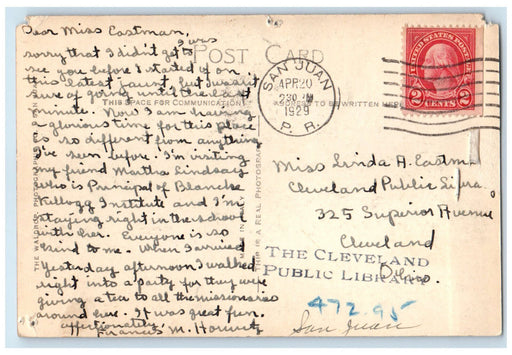 Dear Miss Eastman,
I was
sorry that I didn't get to
see you before I started off on
this latest jaunt but wasn't
sure of going until the last
minute. Now I am having
a glorious time for this place
is so different from anything
I've seen before. I'm visiting
my friend Martha Lindsay
who is Principal of Blanche
Kellogg Institute and I'm
staying right in the school
with her. Everyone is so
kind to me. When I arrived
yesterday afternoon I walked
right into a party for they were
giving a tea to all the missionaries
around here. It was great fun.
Affectionately,
Frances M.
POST CARD
THIS SPACE FOR COMMUNICATION
ADDRESS TO BE WRITTEN HERE
THE WALDROP PHOTOGRAPHIC
THIS IS A REAL PHOTOGRAPH
MADE IN
SAN JUAN
APR 20
2 30 PM
1929
P. R.
UNITED STATES POSTAGE
2 CENTS 2
Miss Linda A. Eastman
Cleveland Public Library
325 Superior Avenue
Cleveland
Ohio.
THE CLEVELAND
PUBLIC LIBRARY
472.95
San Juan